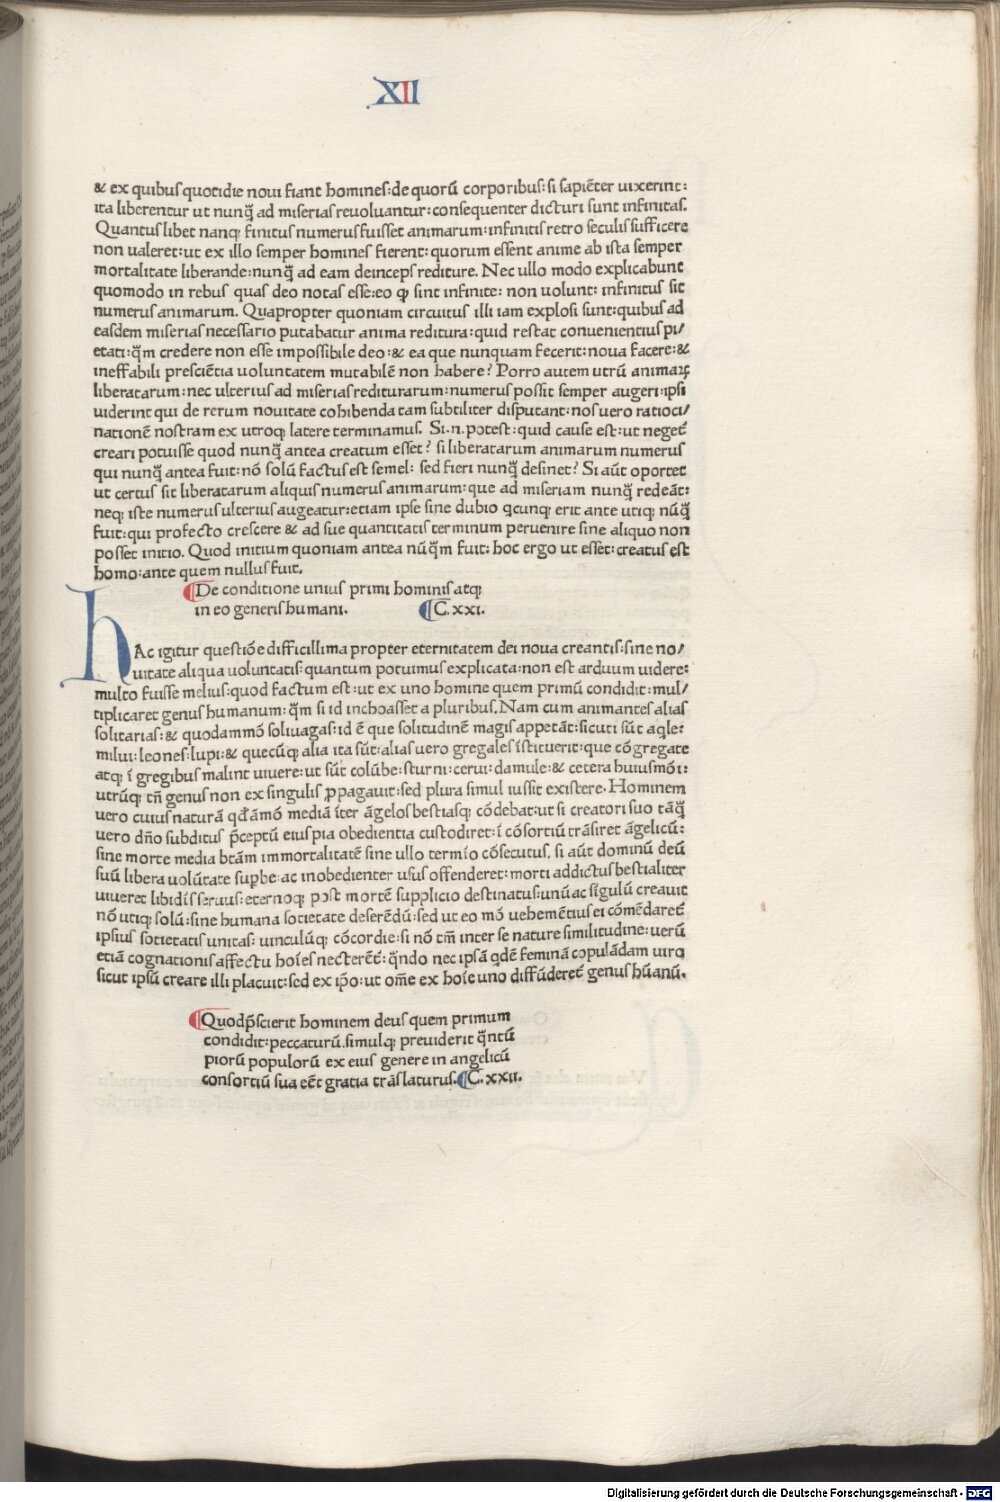 XII
& ex quibus quotidie noui fiant homines: de quorū corporibus: si sapiēter uixerint:
ita liberentur ut nunq̄ ad miserias reuoluantur: consequenter dicturi sunt infinitas.
Quantuslibet nanq; finitus numerus fuisset animarum: infinitis retro seculis sufficere
non ualeret: ut ex illo semper homines fierent: quorum essent anime ab ista semper
mortalitate liberande: nunq̄ ad eam deinceps rediture. Nec ullo modo explicabunt
quomodo in rebus quas deo notas esse: eo ꝙ sint infinite: non uolunt: infinitus sit
numerus animarum. Quapropter quoniam circuitus illi iam explosi sunt: quibus ad
easdem miserias necessario putabatur anima reditura: quid restat conuenientius pi/
etati: q̄m credere non esse impossibile deo: & ea que nunquam fecerit: noua facere: &
ineffabili presciētia uoluntatem mutabilē non habere? Porro autem utrū animaꝝ
liberatarum: nec ulterius ad miserias rediturarum: numerus possit semper augeri: ipsi
uiderint qui de rerum nouitate cohibenda tam subtiliter disputant: nos uero ratioci/
nationē nostram ex utroq; latere terminamus. Si .n. potest: quid cause est: ut neget̄
creari potuisse quod nunq̄ antea creatum esset? si liberatarum animarum numerus
qui nunq̄ antea fuit: nō solū factus est semel: sed fieri nunq̄ desinet? Si aūt oportet
ut certus sit liberatarum aliquis numerus animarum: que ad miseriam nunq̄ redeāt:
neq; iste numerus ulterius augeatur: etiam ipse sine dubio qcunq; erit ante utiq; nūq̄
fuit: qui profecto crescere & ad sue quantitatis terminum peruenire sine aliquo non
posset initio. Quod initium quoniam antea nūq̄m fuit: hoc ergo ut esset: creatus est
homo: ante quem nullus fuit.
¶De conditione unius primi hominis atq;
in eo generis humani. ¶C. xxi.
hAc igitur questiōe difficillima propter eternitatem dei noua creantis: sine no/
uitate aliqua uoluntatis: quantum potuimus explicata: non est arduum uidere:
multo fuisse melius: quod factum est: ut ex uno homine quem primū condidit: mul/
tiplicaret genus humanum: q̄m si id inchoasset a pluribus. Nam cum animantes alias
solitarias: & quodammō soliuagas: id ē que solitudinē magis appetāt: sicuti sūt aqle:
milui: leones: lupi: & quecūq; alia ita sūt: alias uero gregales īstituerit: que cōgregate
atq; ī gregibus malint uiuere: ut sūt colūbe: sturni: cerui: damule: & cetera huiusmōi:
utrūq; tn̄ genus non ex singulis ꝓpagauit: sed plura simul iussit existere. Hominem
uero cuius naturā qdāmō mediā īter āgelos bestiasq; cōdebat: ut si creatori suo tāq̄
uero dn̄o subditus p̄ceptū eius pia obedientia custodiret: ī cōsortiū trāsiret āgelicū:
sine morte media btām immortalitatē sine ullo termīo cōsecutus. si aūt dominū deū
suū libera uolūtate suꝑbe: ac inobedienter usus offenderet: morti addictus bestialiter
uiueret libidīs seruus: eternoq; post mortē supplicio destinatus: unū ac sīgulū creauit
nō utiq; solū: sine humana societate deserēdū: sed ut eo mō uehemētius ei cōmēdaret̄
ipsius societatis unitas: uinculūq; cōcordie: si nō tm̄ inter se nature similitudine: uerū
etiā cognationis affectu hoīes necterēt̄: q̄ndo nec ipsā qdē feminā copulādam uiro
sicut ipsū creare illi placuit: sed ex ip̄o: ut om̄e ex hoīe uno diffūderet̄ genus hūanū.
¶Quod p̄scierit hominem deus quem primum
condidit: peccaturū. simulq; preuiderit q̄ntū
piorū populorū ex eius genere in angelicū
consortiū sua eēt gratia trāslaturus. ¶C. xxii.
Digitalisierung gefördert durch die Deutsche Forschungsgemeinschaft - DFG